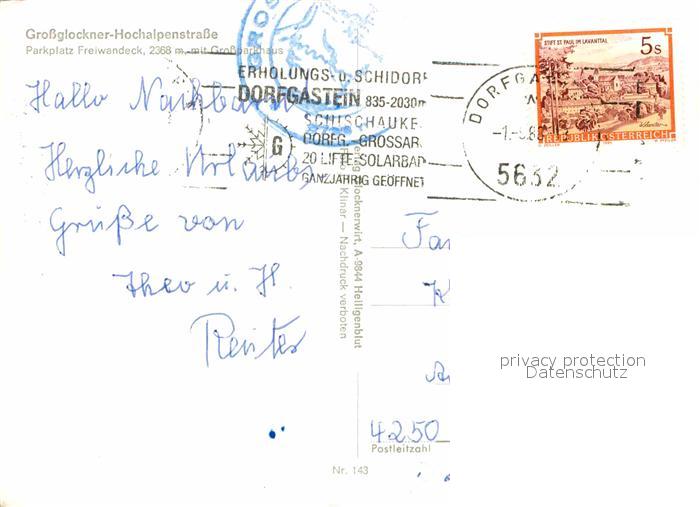 Großglockner-Hochalpenstraße
Parkplatz Freiwandeck, 2368 m, mit Großparkhaus
Hallo Nachbarn
Herzliche Urlaubs
Grüße von
Theo u. H.
Reuter
ERHOLUNGS- U. SCHIDORF
DORFGASTEIN 835-2030m
SCHISCHAUKEL
DORFG.-GROSSARL
20 LIFTE-SOLARBAD
GANZJÄHRIG GEÖFFNET
G
5632
STIFT ST. PAUL IM LAVANTTAL
5 S
REPUBLIK ÖSTERREICH
Glocknerwirt, A-9844 Heiligenblut
Klinar — Nachdruck verboten
Fa
4250
Postleitzahl
Nr. 143
privacy protection
Datenschutz